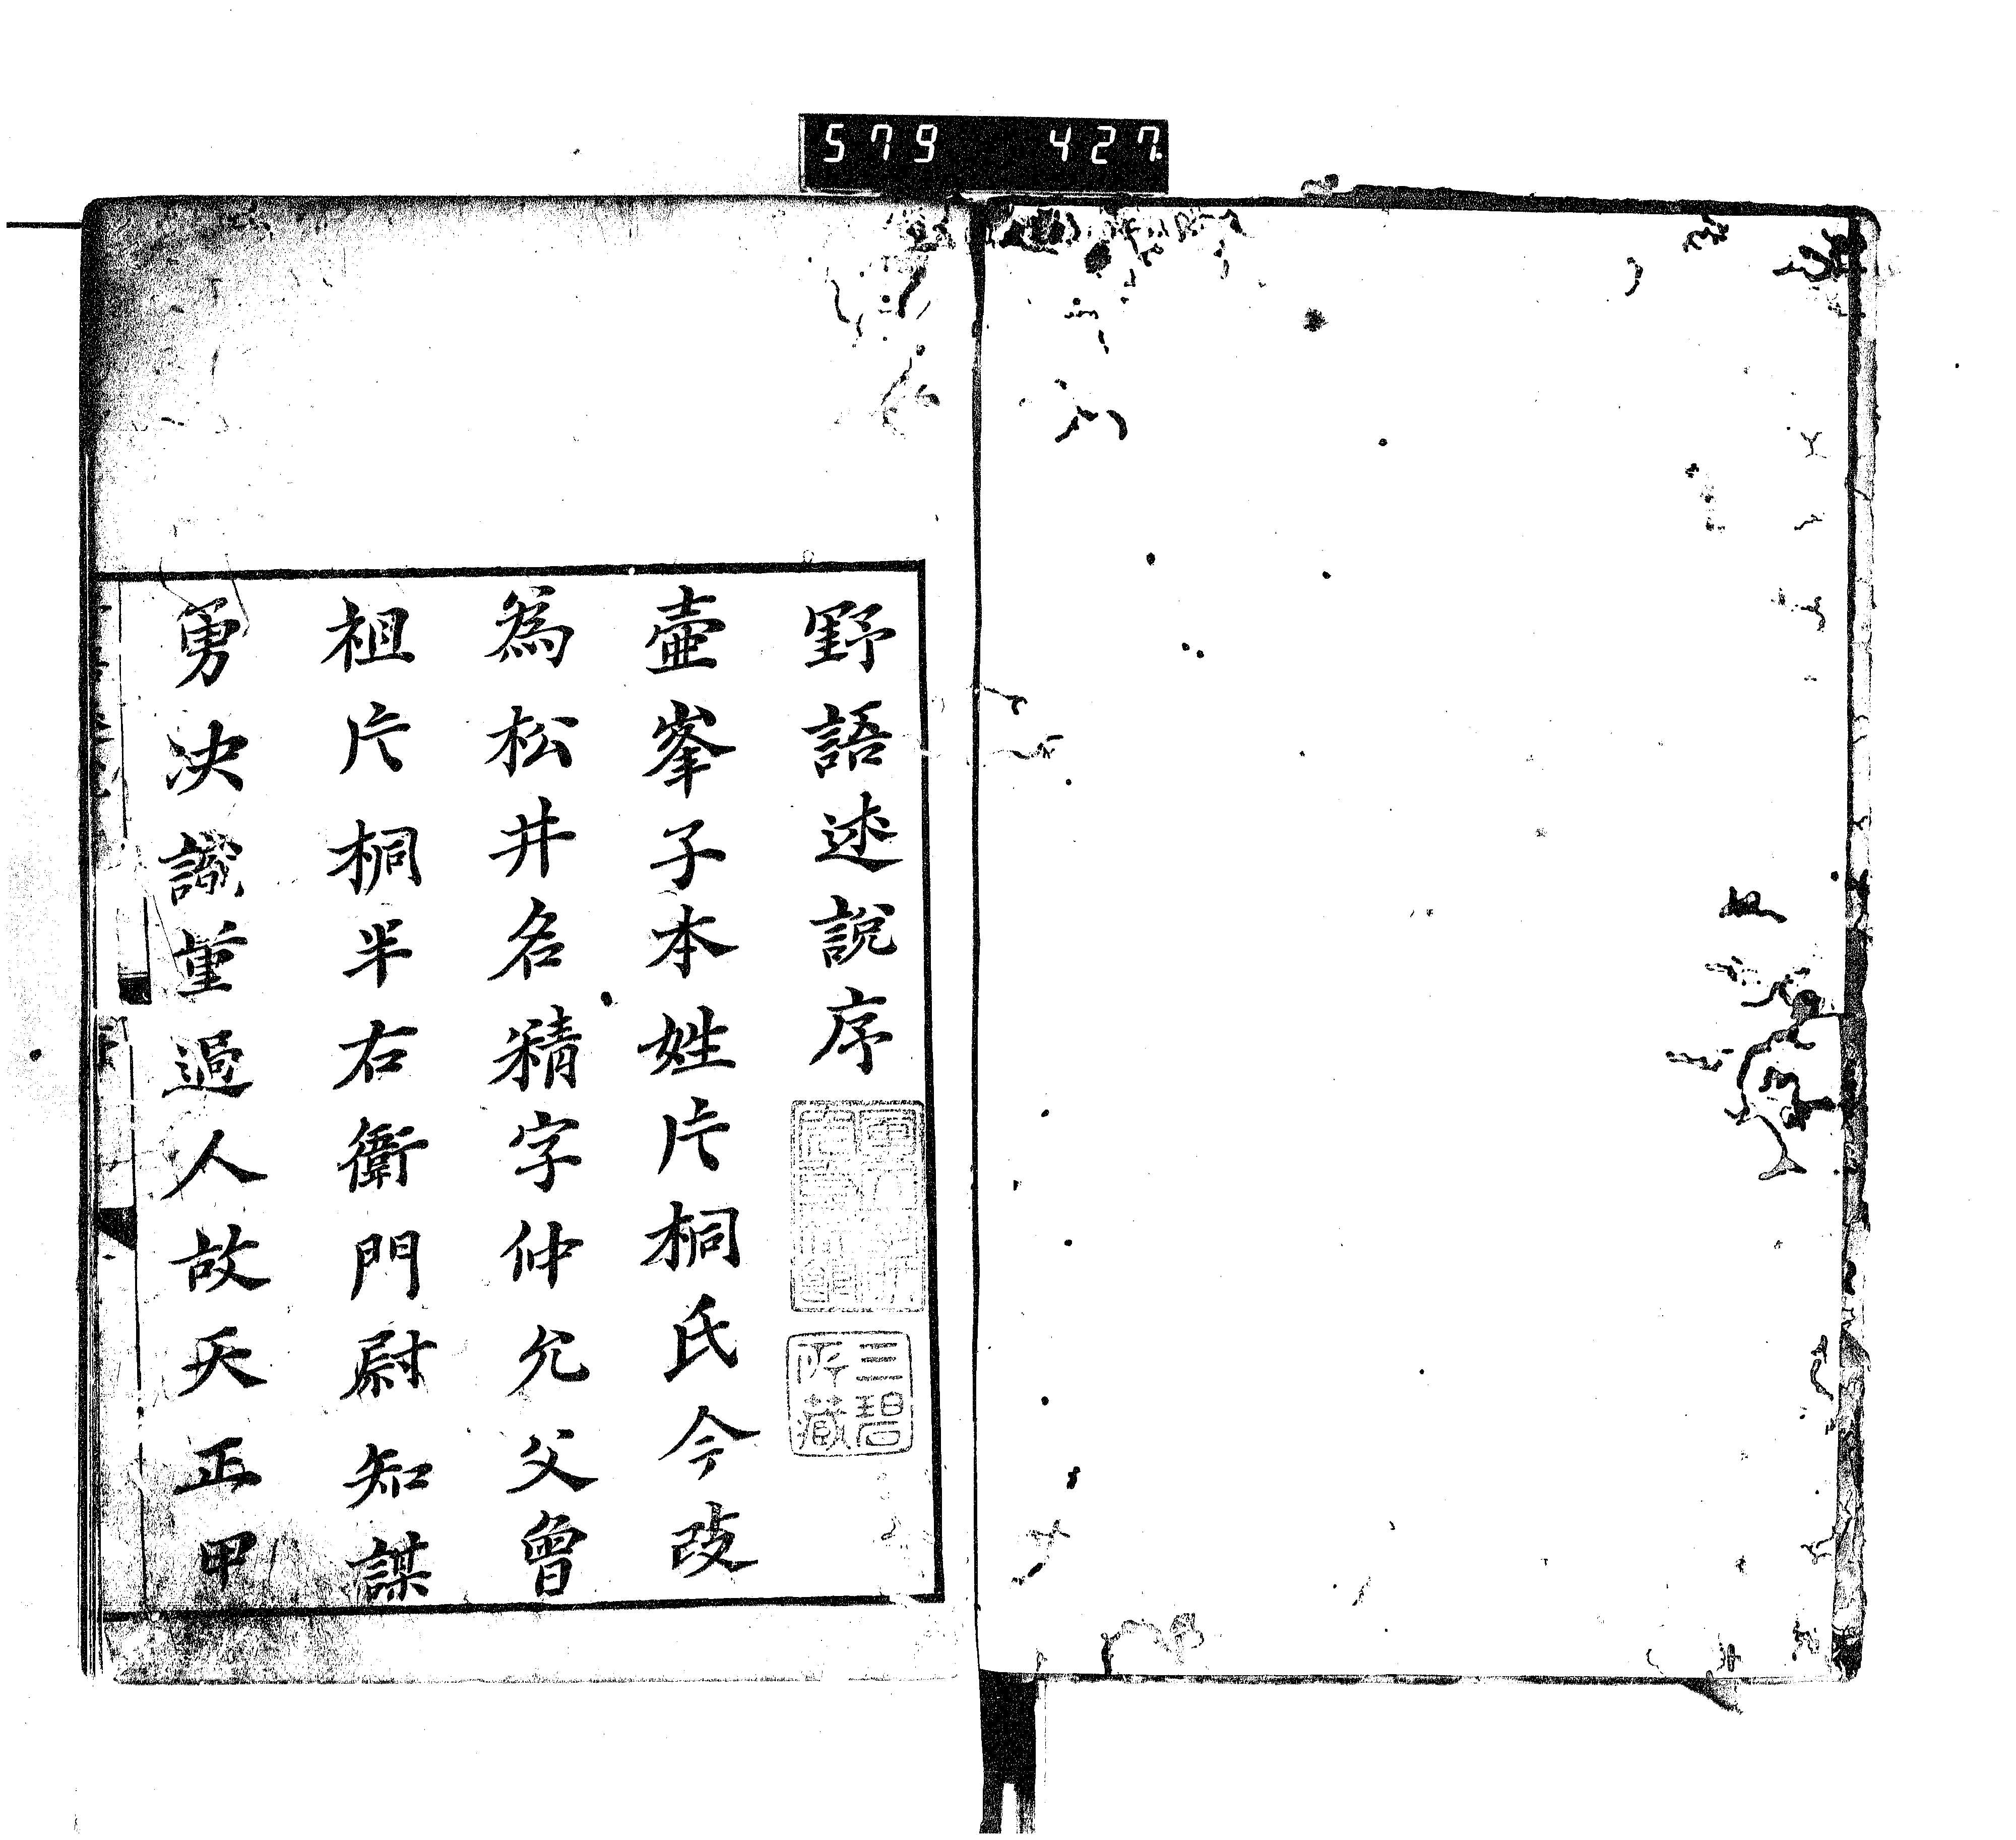 579 427
野語述説序
壷峯子本姓片桐氏今改
為松井名精字仲允父曾
祖片桐半右衛門尉知謀
勇决識量過人故天正甲
三碧
所藏